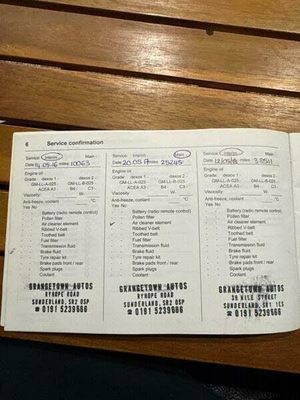 6 Service confirmation
Service Interim Main
Date 14.05.16 miles 10063
Engine oil
Grade dexos 1 dexos 2
GM-LL-A-025 GM-LL-B-025
ACEA A3 B4 C3
Viscosity W
Anti-freeze, coolant
Yes No
Battery (radio remote control)
Pollen filter
Air cleaner element
Ribbed V-belt
Toothed belt
Fuel filter
Transmission fluid
Brake fluid
Tyre repair kit
Brake pads front / rear
Spark plugs
Coolant
GRANGETOWN AUTOS
RYHOPE ROAD
SUNDERLAND, SR2 0SP
☎ 0191 5239666
Service Interim Main
Date 20.05.17 miles 25245
Engine oil
Grade dexos 1 dexos 2
GM-LL-A-025 GM-LL-B-025
ACEA A3 B4 C3
Viscosity W
Anti-freeze, coolant
Yes No
Battery (radio remote control)
Pollen filter
✓ Air cleaner element
Ribbed V-belt
Toothed belt
Fuel filter
Transmission fluid
Brake fluid
Tyre repair kit
Brake pads front / rear
Spark plugs
Coolant
GRANGETOWN AUTOS
RYHOPE ROAD
SUNDERLAND, SR2 0SP
☎ 0191 5239666
Service Interim Main
Date miles
Engine oil
Grade dexos 1 dexos 2
GM-LL-A-025 GM-LL-B-025
ACEA A3 B4 C3
Viscosity W
Anti-freeze, coolant
Yes No
Battery (radio remote control)
Pollen filter
Air cleaner element
Ribbed V-belt
Toothed belt
Fuel filter
Transmission fluid
Brake fluid
Tyre repair kit
Brake pads front / rear
Spark plugs
Coolant
GRANGETOWN AUTOS
39 NILE STREET
SUNDERLAND, SR1 1ES
☎ 0191 5239666